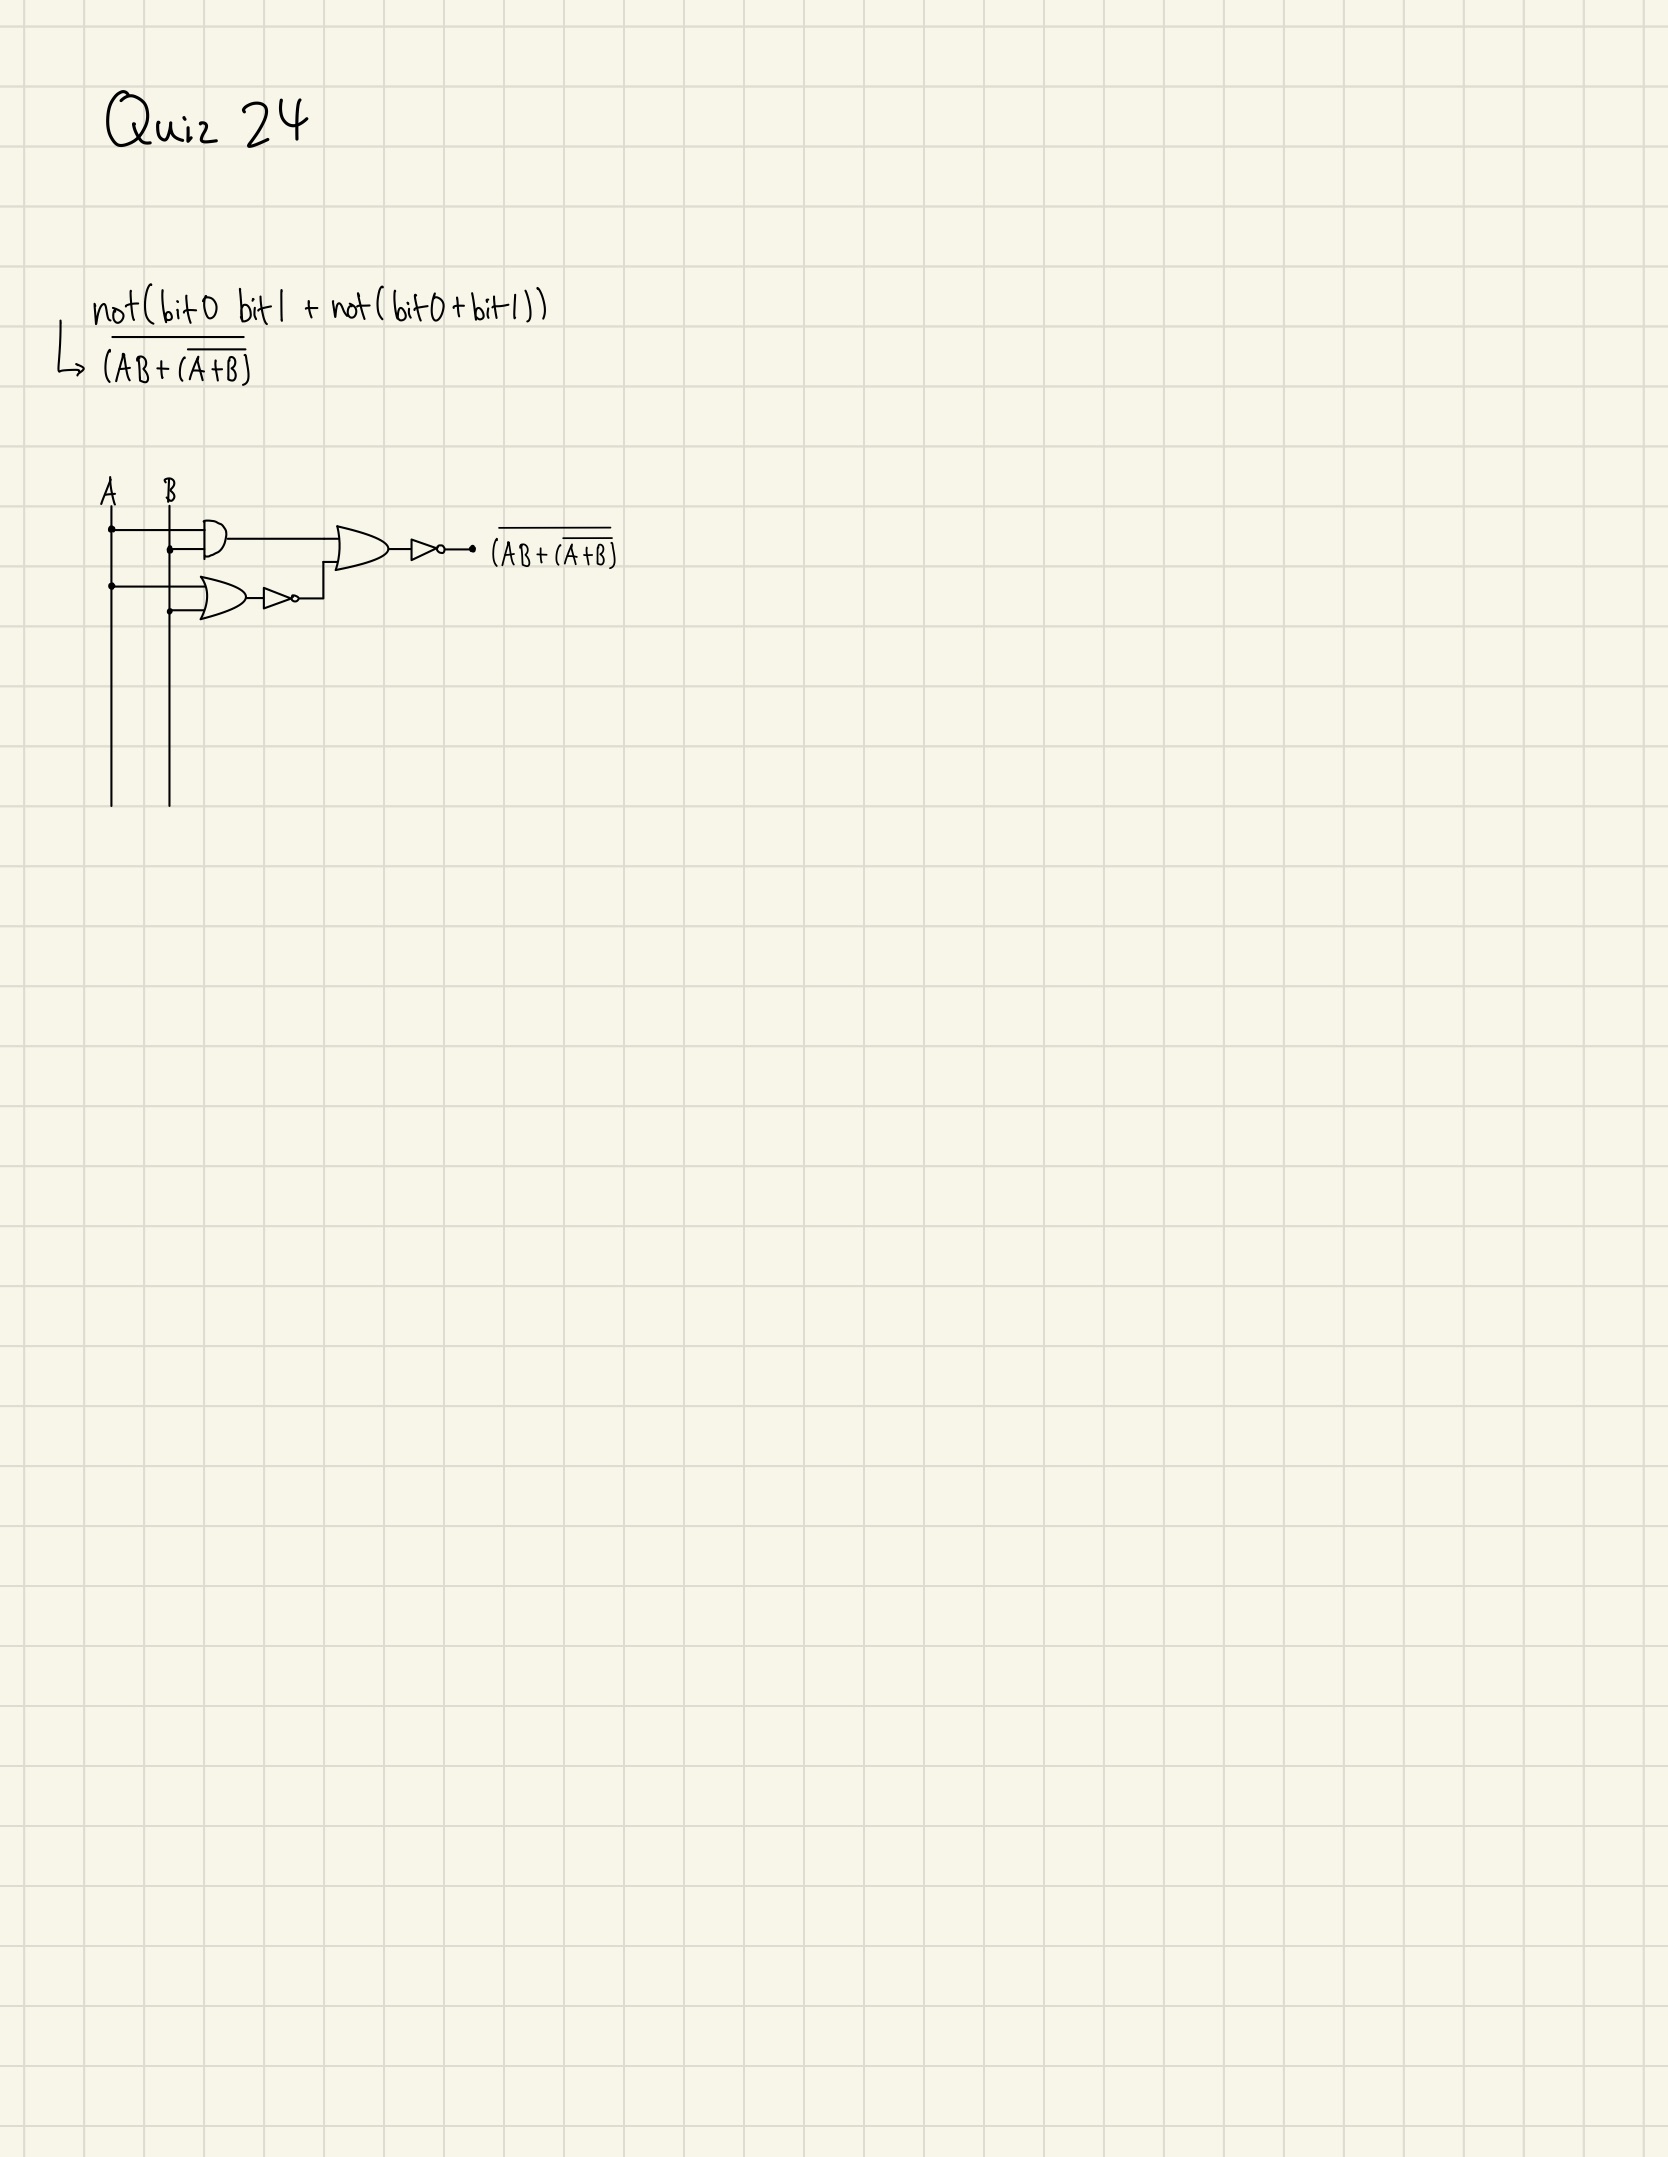 Quiz 24
not(bit0 bit1 + not(bit0+bit1))
(AB+(A+B)
A B
(AB+(A+B)